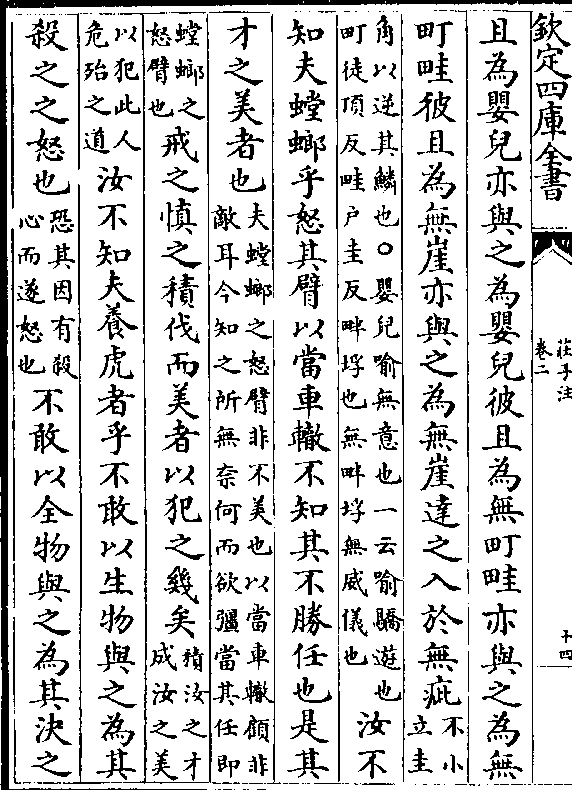 欽定四庫全書
莊子注
卷二
十四
且為嬰兒亦與之為嬰兒彼且為無町畦亦與之為無
町畦彼且為無崖亦與之為無崖達之入於無疵不小立圭
角以逆其鱗也○嬰兒喻無意也一云喻驕遊也町徒頂反畦户圭反畔垺也無畔垺無威儀也汝不
知夫螳螂乎怒其臂以當車轍不知其不勝任也是其
才之美者也夫螳螂之怒臂非不美也以當車轍顧非敵耳今知之所無奈何而欲彊當其任即
螳螂之怒臂也戒之慎之積伐而美者以犯之幾矣積汝之才成汝之美
以犯此人危殆之道汝不知夫養虎者乎不敢以生物與之為其
殺之之怒也恐其因有殺心而遂怒也不敢以全物與之為其決之